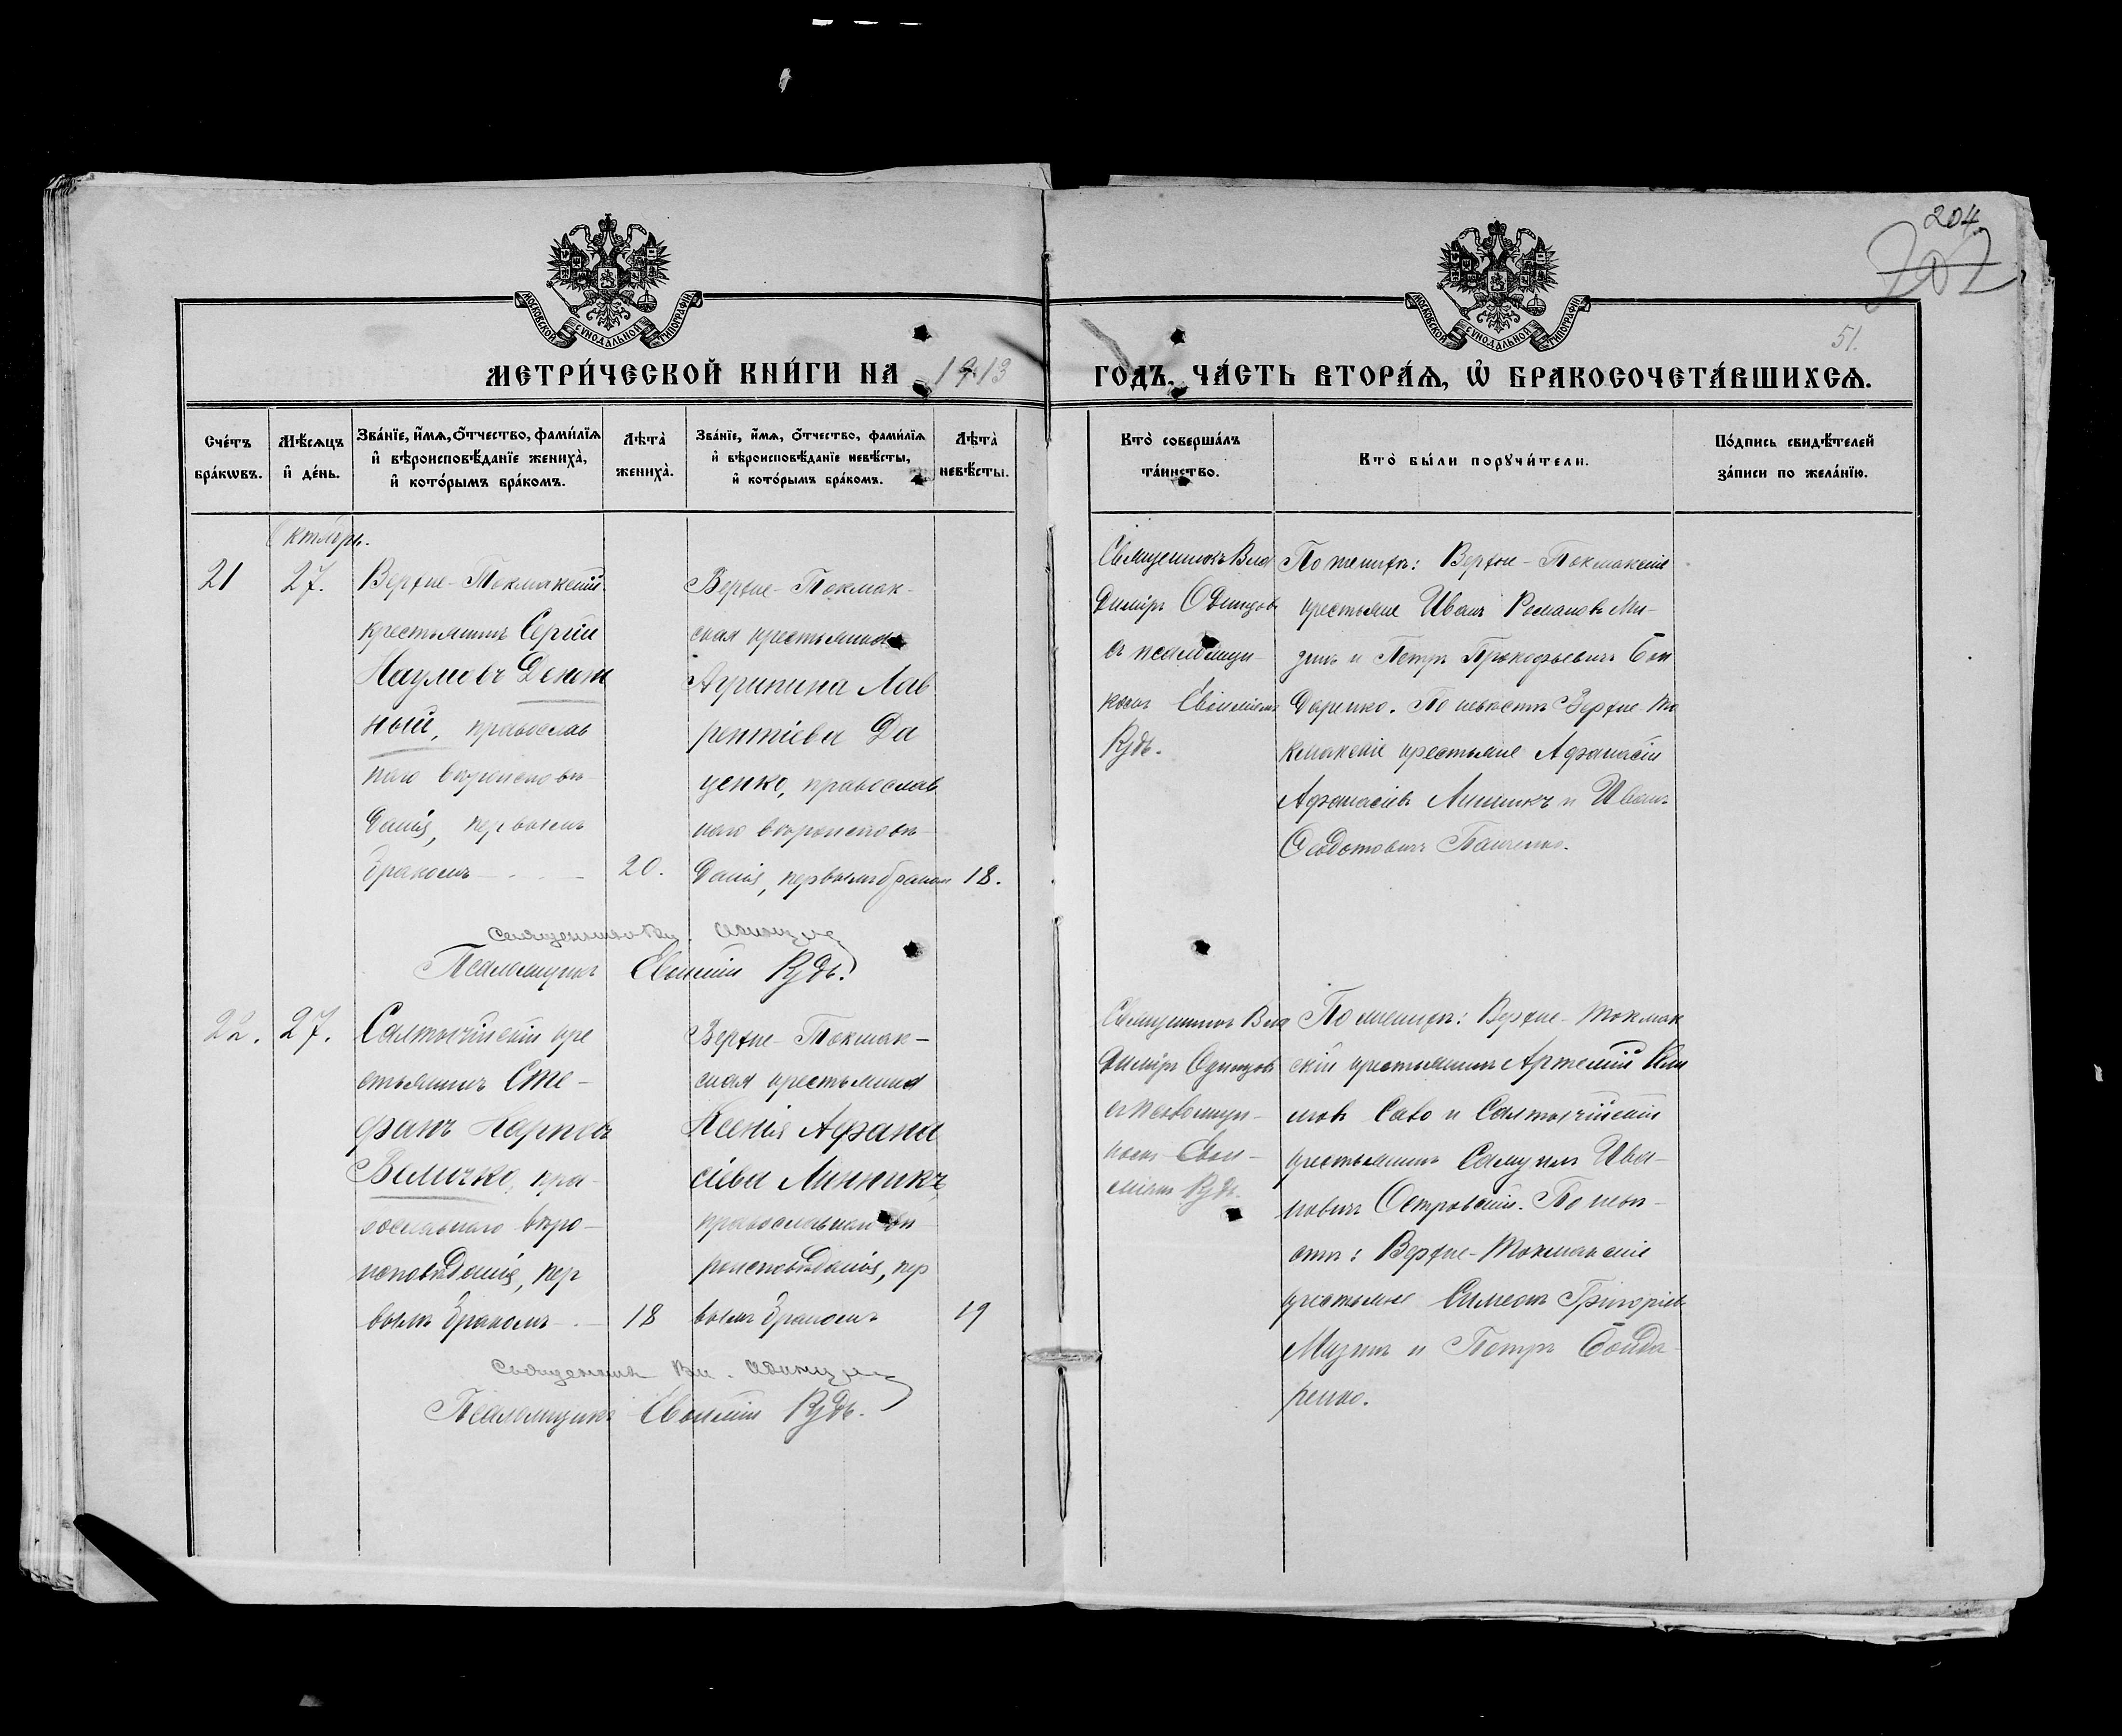 204
202
51.
МОСКОВСКОЙ СѴНОДАЛЬНОЙ ТИПОГРАФІИ
МОСКОВСКОЙ СѴНОДАЛЬНОЙ ТИПОГРАФІИ
МЕТРИ́ЧЕСКОЙ КНИ́ГИ НА 1913 ГОДЪ, ЧА́СТЬ ВТОРА́Ѧ, Ѡ҆ БРАКОСОЧЕТА́ВШИХСѦ.
Сче́тъ
бра́кѡвъ.
Мѣ́сѧцъ
и҆ де́нь.
Зва́нїе, и҆́мѧ, ѻ҆́тчество, фами́лїѧ
и҆ вѣроисповѣ́данїе жениха̀,
и҆ кото́рымъ бра́комъ.
Лѣта̀
жениха̀.
Зва́нїе, и҆́мѧ, ѻ҆́тчество, фами́лїѧ
и҆ вѣроисповѣ́данїе невѣ́сты,
и҆ кото́рымъ бра́комъ.
Лѣта̀
невѣ́сты.
Кто̀ соверша́лъ
та́инство.
Кто̀ бы́ли порꙋчи́тели.
По́дпись свидѣ́телей
за́писи по жела́нїю.
Октябрь.
21
27.
Верхне-Токмакскій
крестьянинъ Сергій
Наумовъ Деют
ный, православ
наго вѣроисповѣ-
данія, первымъ
бракомъ
20.
Верхне-Токмак-
ская крестьянка
Агрипина Лав
рентіева Да
ценко, православ
наго вѣроисповѣ-
данія, первымъ бракомъ
18.
Священникъ Вла
диміръ Одинцовъ
съ псаломщи-
комъ Евфиміемъ
Рудь.
По женихѣ: Верхне-Токмакскіе
крестьяне Иванъ Романовъ Ми-
зинъ и Петръ Прокофьевичъ Бон
даренко. По невѣстѣ Верхне-То
кмакскіе крестьяне Афанасій
Афанасіевъ Линникъ и Иванъ
Феодотовичъ Панченко.
Священникъ Вл. Одинцовъ
Псаломщикъ Евфимій Рудь.
22.
27.
Салтычійскій кре
стьянинъ Сте-
фанъ Карповъ
Величко, пра-
вославнаго вѣро-
исповѣданія, пер
вымъ бракомъ
18
Верхне-Токмак-
ская крестьянка
Ксенія Афана
сіева Линникъ,
православнаго вѣ
роисповѣданія, пер
вымъ бракомъ
19
Священникъ Вла
диміръ Одинцовъ
съ псаломщи-
комъ Евфи-
міемъ Рудь.
По женихѣ: Верхне-Токмак
скій крестьянинъ Артемій
Саво и Салтычійскій
крестьянинъ Самуилъ Ива-
новичъ Островскій. По невѣ-
стѣ: Верхне-Токмакскіе
крестьяне Симеонъ Григоріевъ
Мизинъ и Петръ Бонда-
ренко.
Священникъ Вл. Одинцовъ
Псаломщикъ Евфимій Рудь.